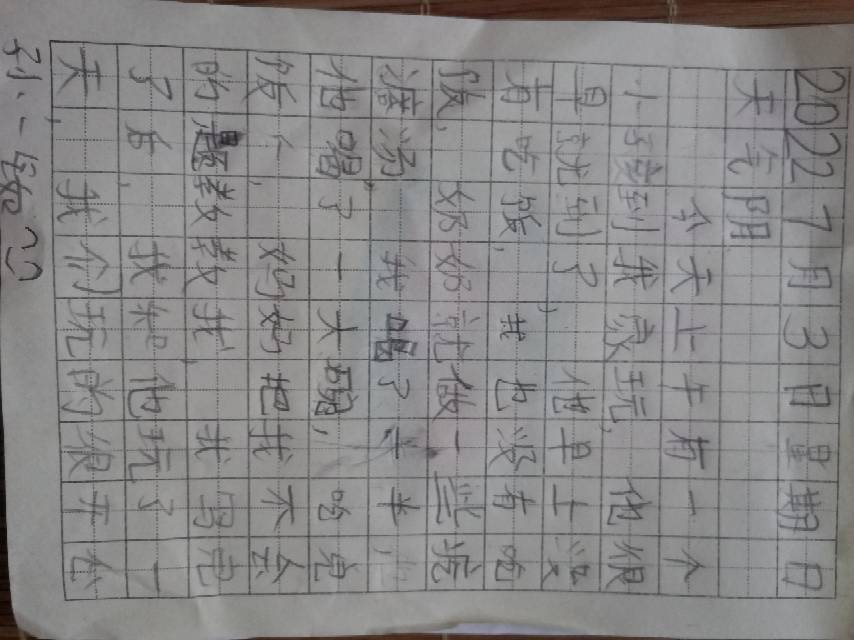 2022 7月3日星期日
天气阴
今天上午有一个
小孩到我家玩,他很
早就到了,他早上没
有吃饭,我也没有吃
饭,奶奶就做一些疙
渣汤,我喝了半
他喝了一大碗,吃完
饭,妈妈把我不会
的题教教我,我写完
了后,我和他玩了一
天,我们玩的很开心